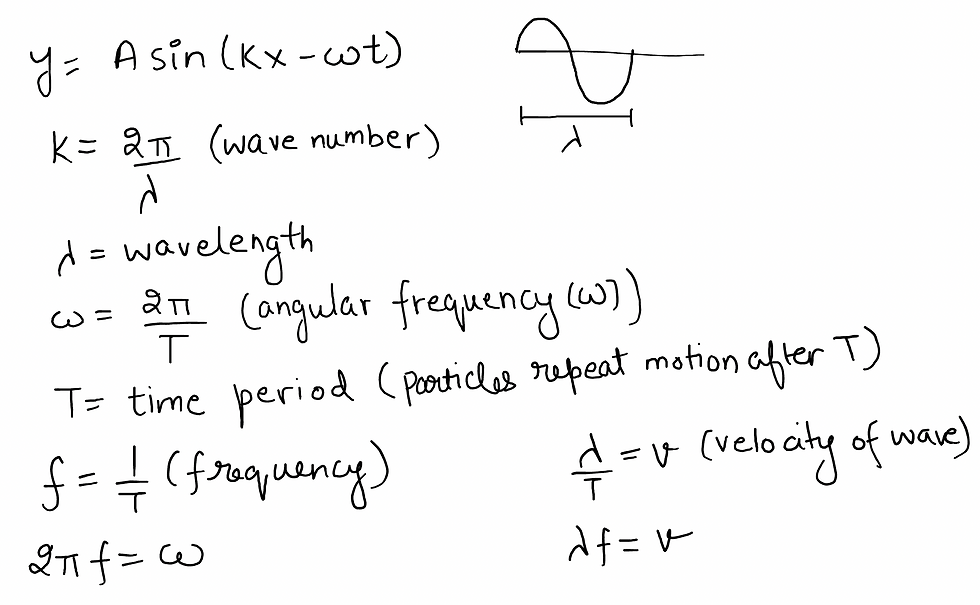 y = A sin (Kx - ωt)
λ
K = 2π/λ (wave number)
λ = wavelength
ω = 2π/T (angular frequency (ω))
T = time period (particles repeat motion after T)
f = 1/T (frequency)
λ/T = v (velocity of wave)
2π f = ω
λf = v